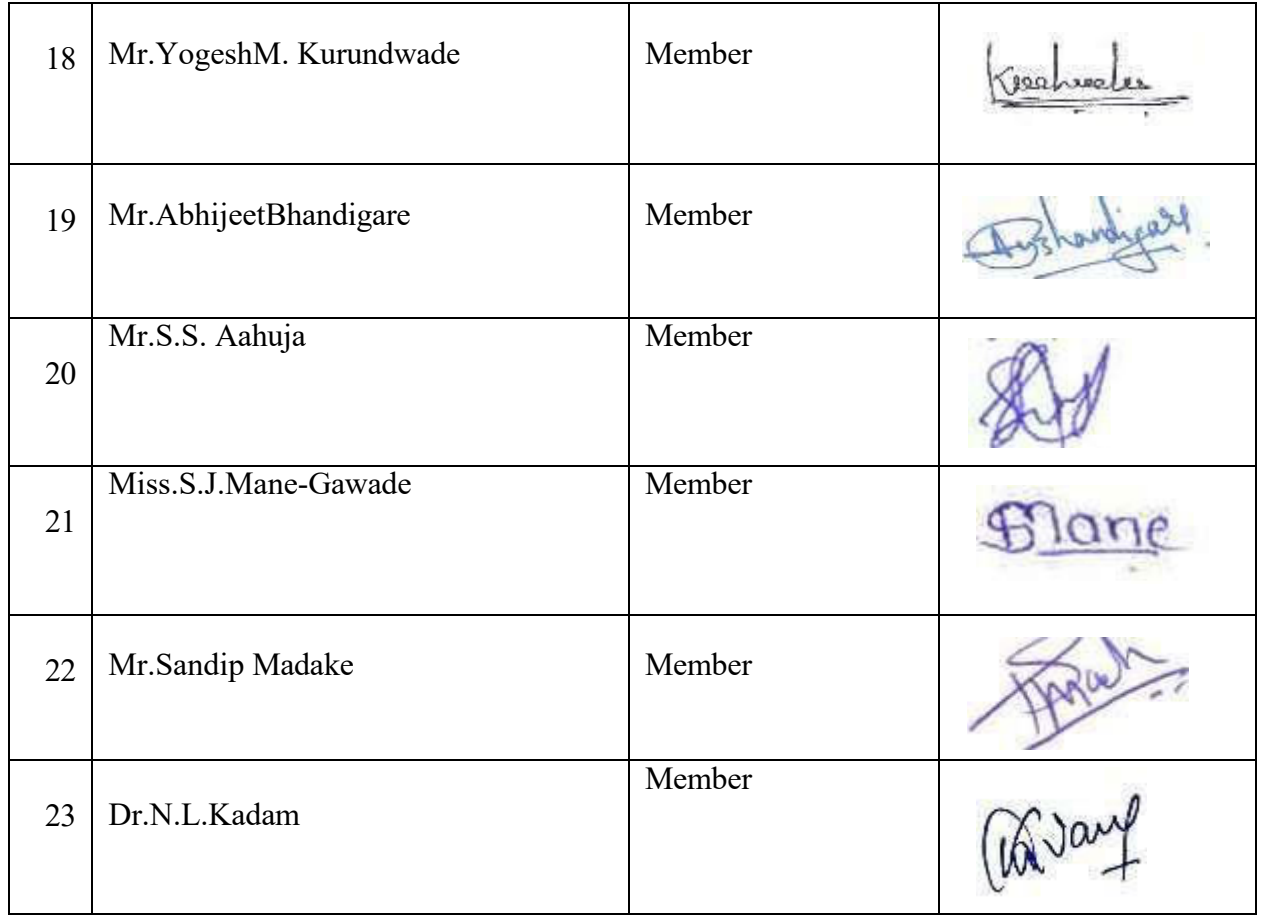 18 Mr.YogeshM. Kurundwade Member
19 Mr.AbhijeetBhandigare Member
20 Mr.S.S. Aahuja Member
21 Miss.S.J.Mane-Gawade Member SMane
22 Mr.Sandip Madake Member
23 Dr.N.L.Kadam Member